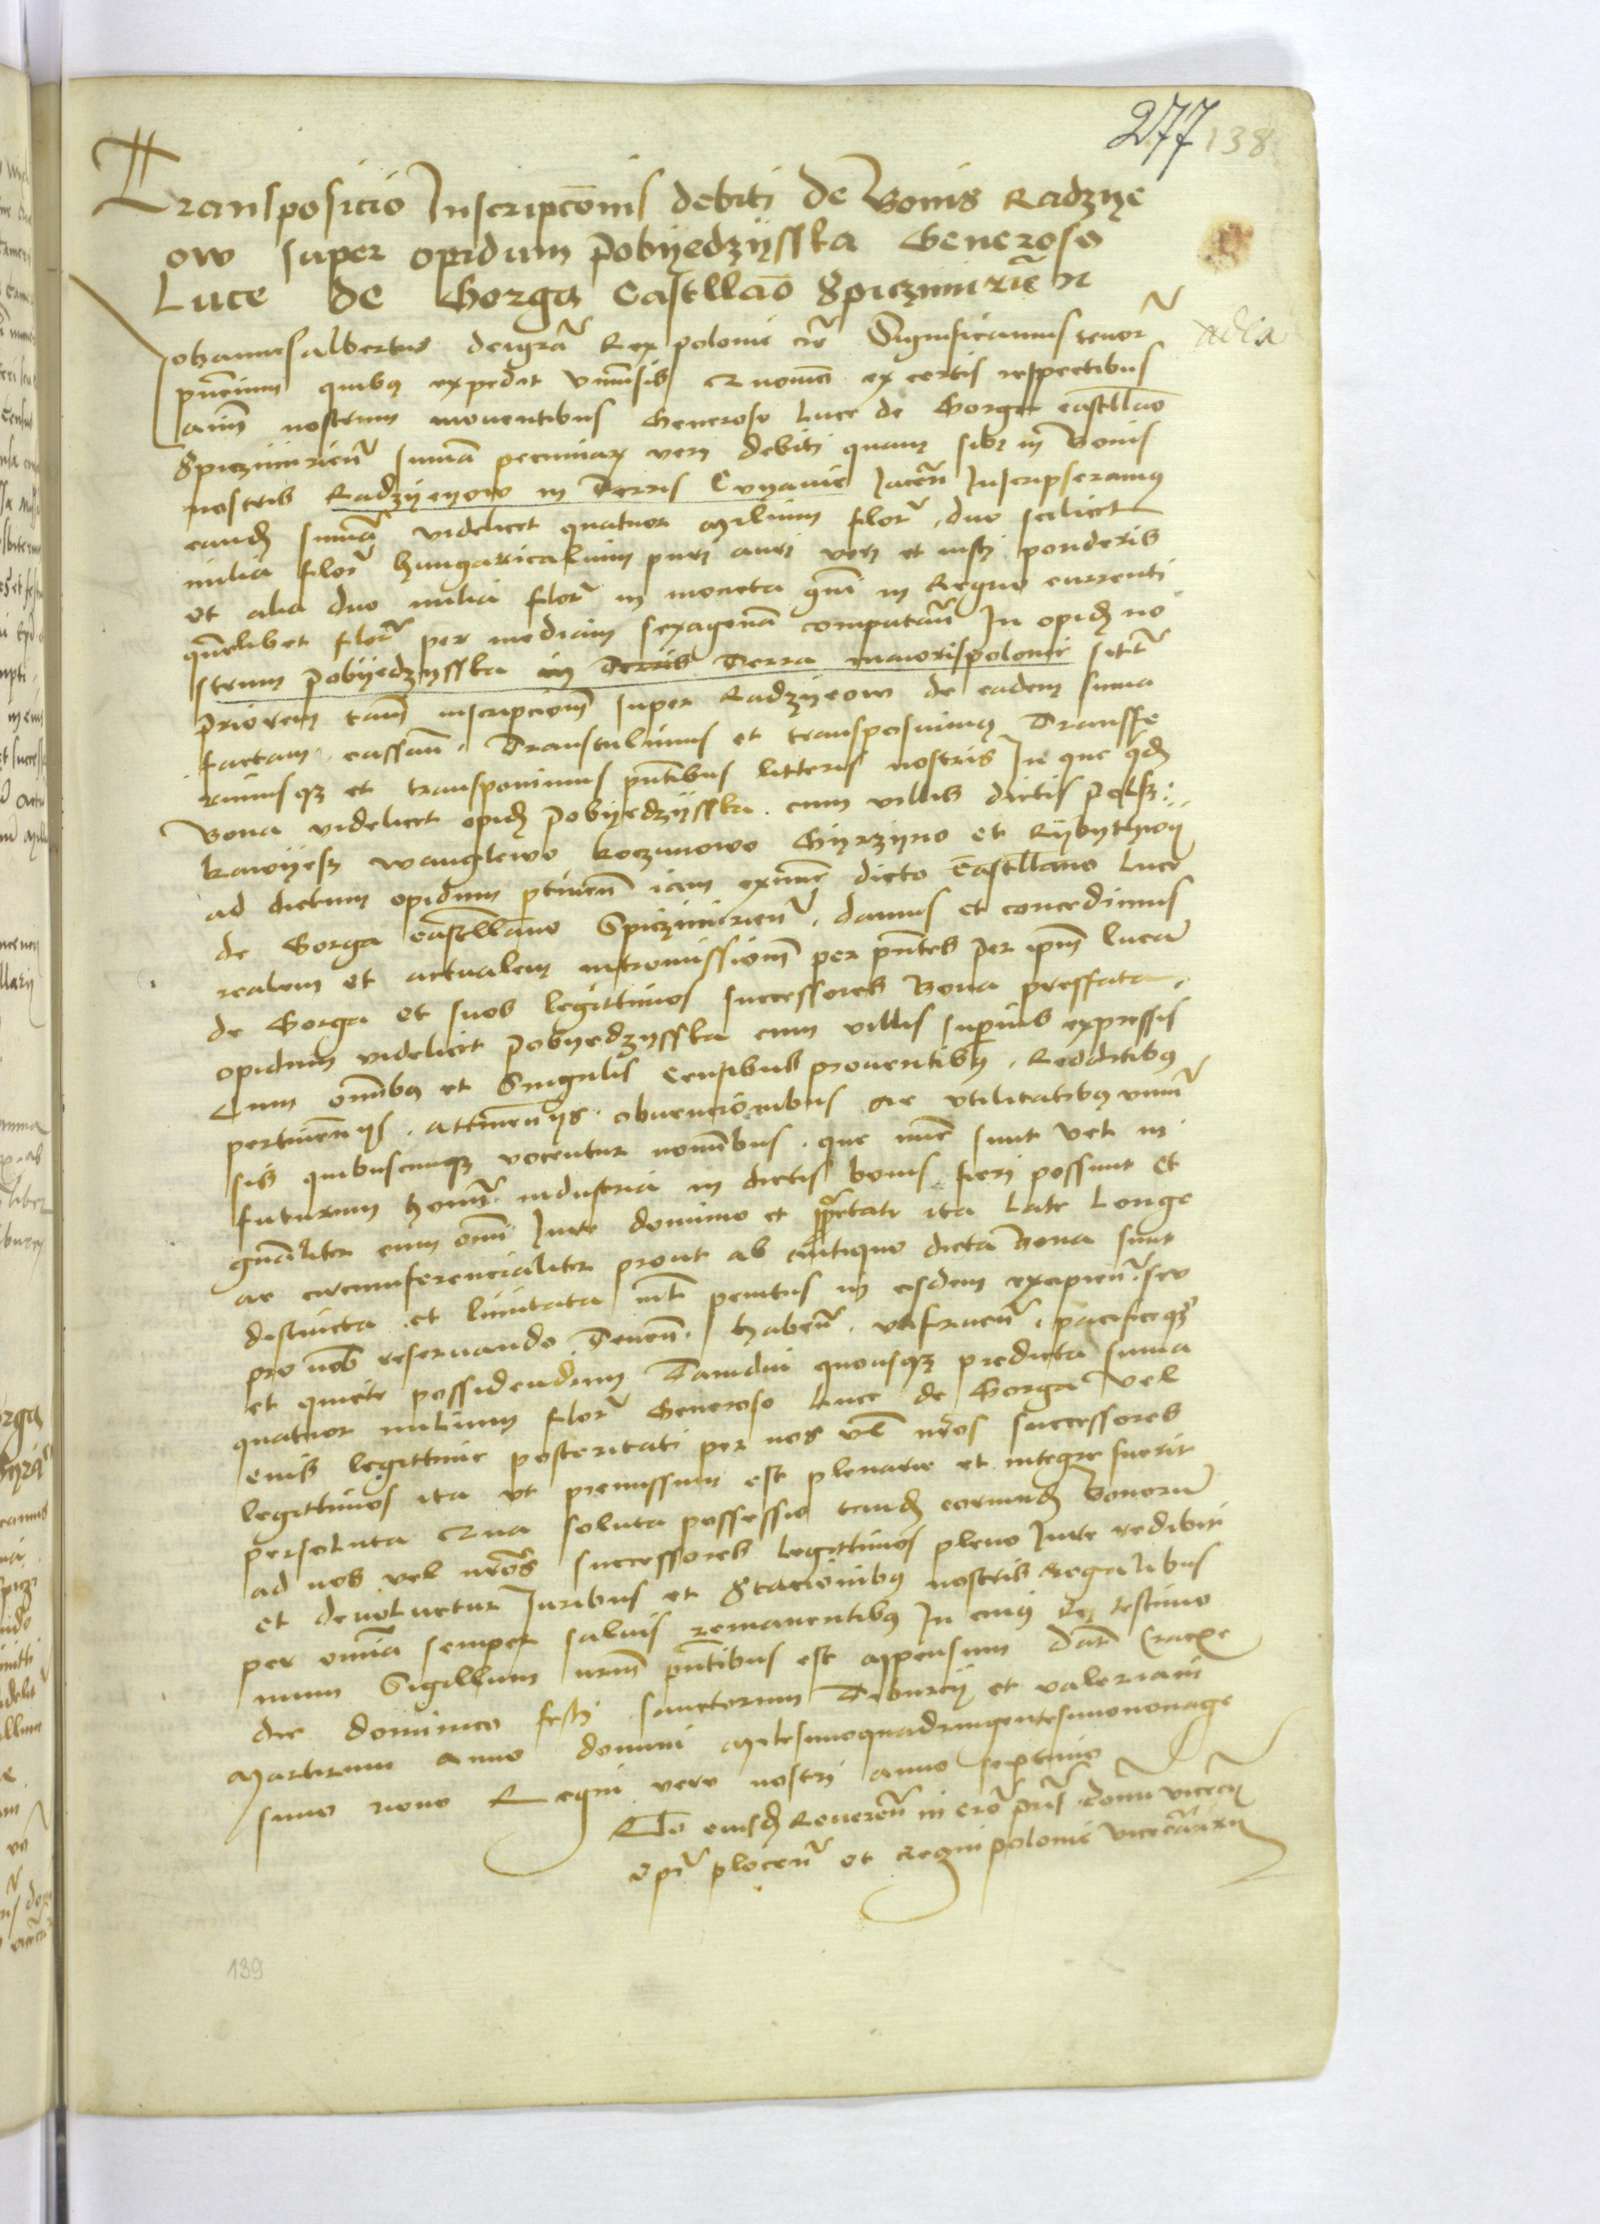 277 138
Transposicio Inscripcōnis debiti de Bonis Radzye
ow super opidum Pobyedzysska Generoso
Luce de Gorga Castllāo Spiczimiriēn
Johannesalbertus deigrā Rex polonie etc̄ Significamus tenor
pn̄cium quibus expedit vniūsis Quomō ex certis respectibus
aīm nostrum mouentibus Generoso Luce de Gorga castllāo
Spiczimirien̄ sum̄a pecuniar veri debiti quam sibi in Bonis
nostris Radzyeyow in Terris Cuyauie Iacen̄ Inscripseramus
eand sum̄ā videlicet quatuor Milium flor duo scilicet
milia flor hungaricalium puri auri veri et iusti ponderis
et alia duo milia flor in moneta com̄i in Regno currenti
quēlibet flor per mediam sexagenā computan̄ In opid no
strum Pobyedzysska in Terris Terra maiorispolonie sitū
Priorem tam̄ inscripcionem super Radzyeow de eadem sum̄a
factam cassan̄ Transtulimus et transposuimus Transffe
rimusqz et transponimus pn̄tibus litteris nostris In que qd
Bona videlicet opid Pobyedzysska cum villis dictis
wanglewo koczanowo Gyrzyno et Rybythwy
ad dictum opidum ptinen̄ iam exnunc dicto Castellano Luce
de Gorga castellano Spiczimirien̄ damus et concedimus
realem et actualem intromissionē per pn̄tes per ipm̄ lucā
de Gorga et suos legittimos successores Bona preffata
opidum videlicet Pobyedzysska cum villis superius expressis
Cum om̄ibus et Singulis Censibus prouentibus Redditibus
pertinencijs attinencijs obuencionibus ac vtilitatibus vniuer
sis quibuscunqz vocentur nominibus que nunc sunt vel in
futurum homī industria in dictis bonis fieri possunt Et
gn̄aliter cum om̄i Iure dominio et pp̄etate ita Late Longe
ac circumferencialiter prout ab antiquo dicta Bona sunt
distincta et limitata nil penitus in eisdem excipien̄ seu
pro nob reseruando Tenen̄ haben̄ vtifruen̄ pacificeqz
et quiete possidendum Tamdiu quousqz predicta sum̄a
quatuor milium flor Generoso Luce de Gorga vel
eius legittime posteritati per nos vel nr̄os successores
legittimos ita vt premissum est plenarie et integre fuerit
persoluta Qua soluta possessio eorund bonorū
ad nos vel nr̄os successores legittimos pleno Iure redibit
et deuoluetur Iuribus et Stacionibus nostris Regalibus
per om̄ia semper saluis remanentibus In cuius rei testimo
nium Sigillum nr̄m pn̄tibus est appensum Dat Cracouie
die dominico festi sanctorum Tiburcij et valeriani
Martirum Anno domini Milesimoquadringentesimononage
simo nono Regni vero nostri anno septimo
Ro eiusd Reueren̄ in Cro pris domī vincecij
Epī plocen̄ et Regni polonie vicecancellarij
139